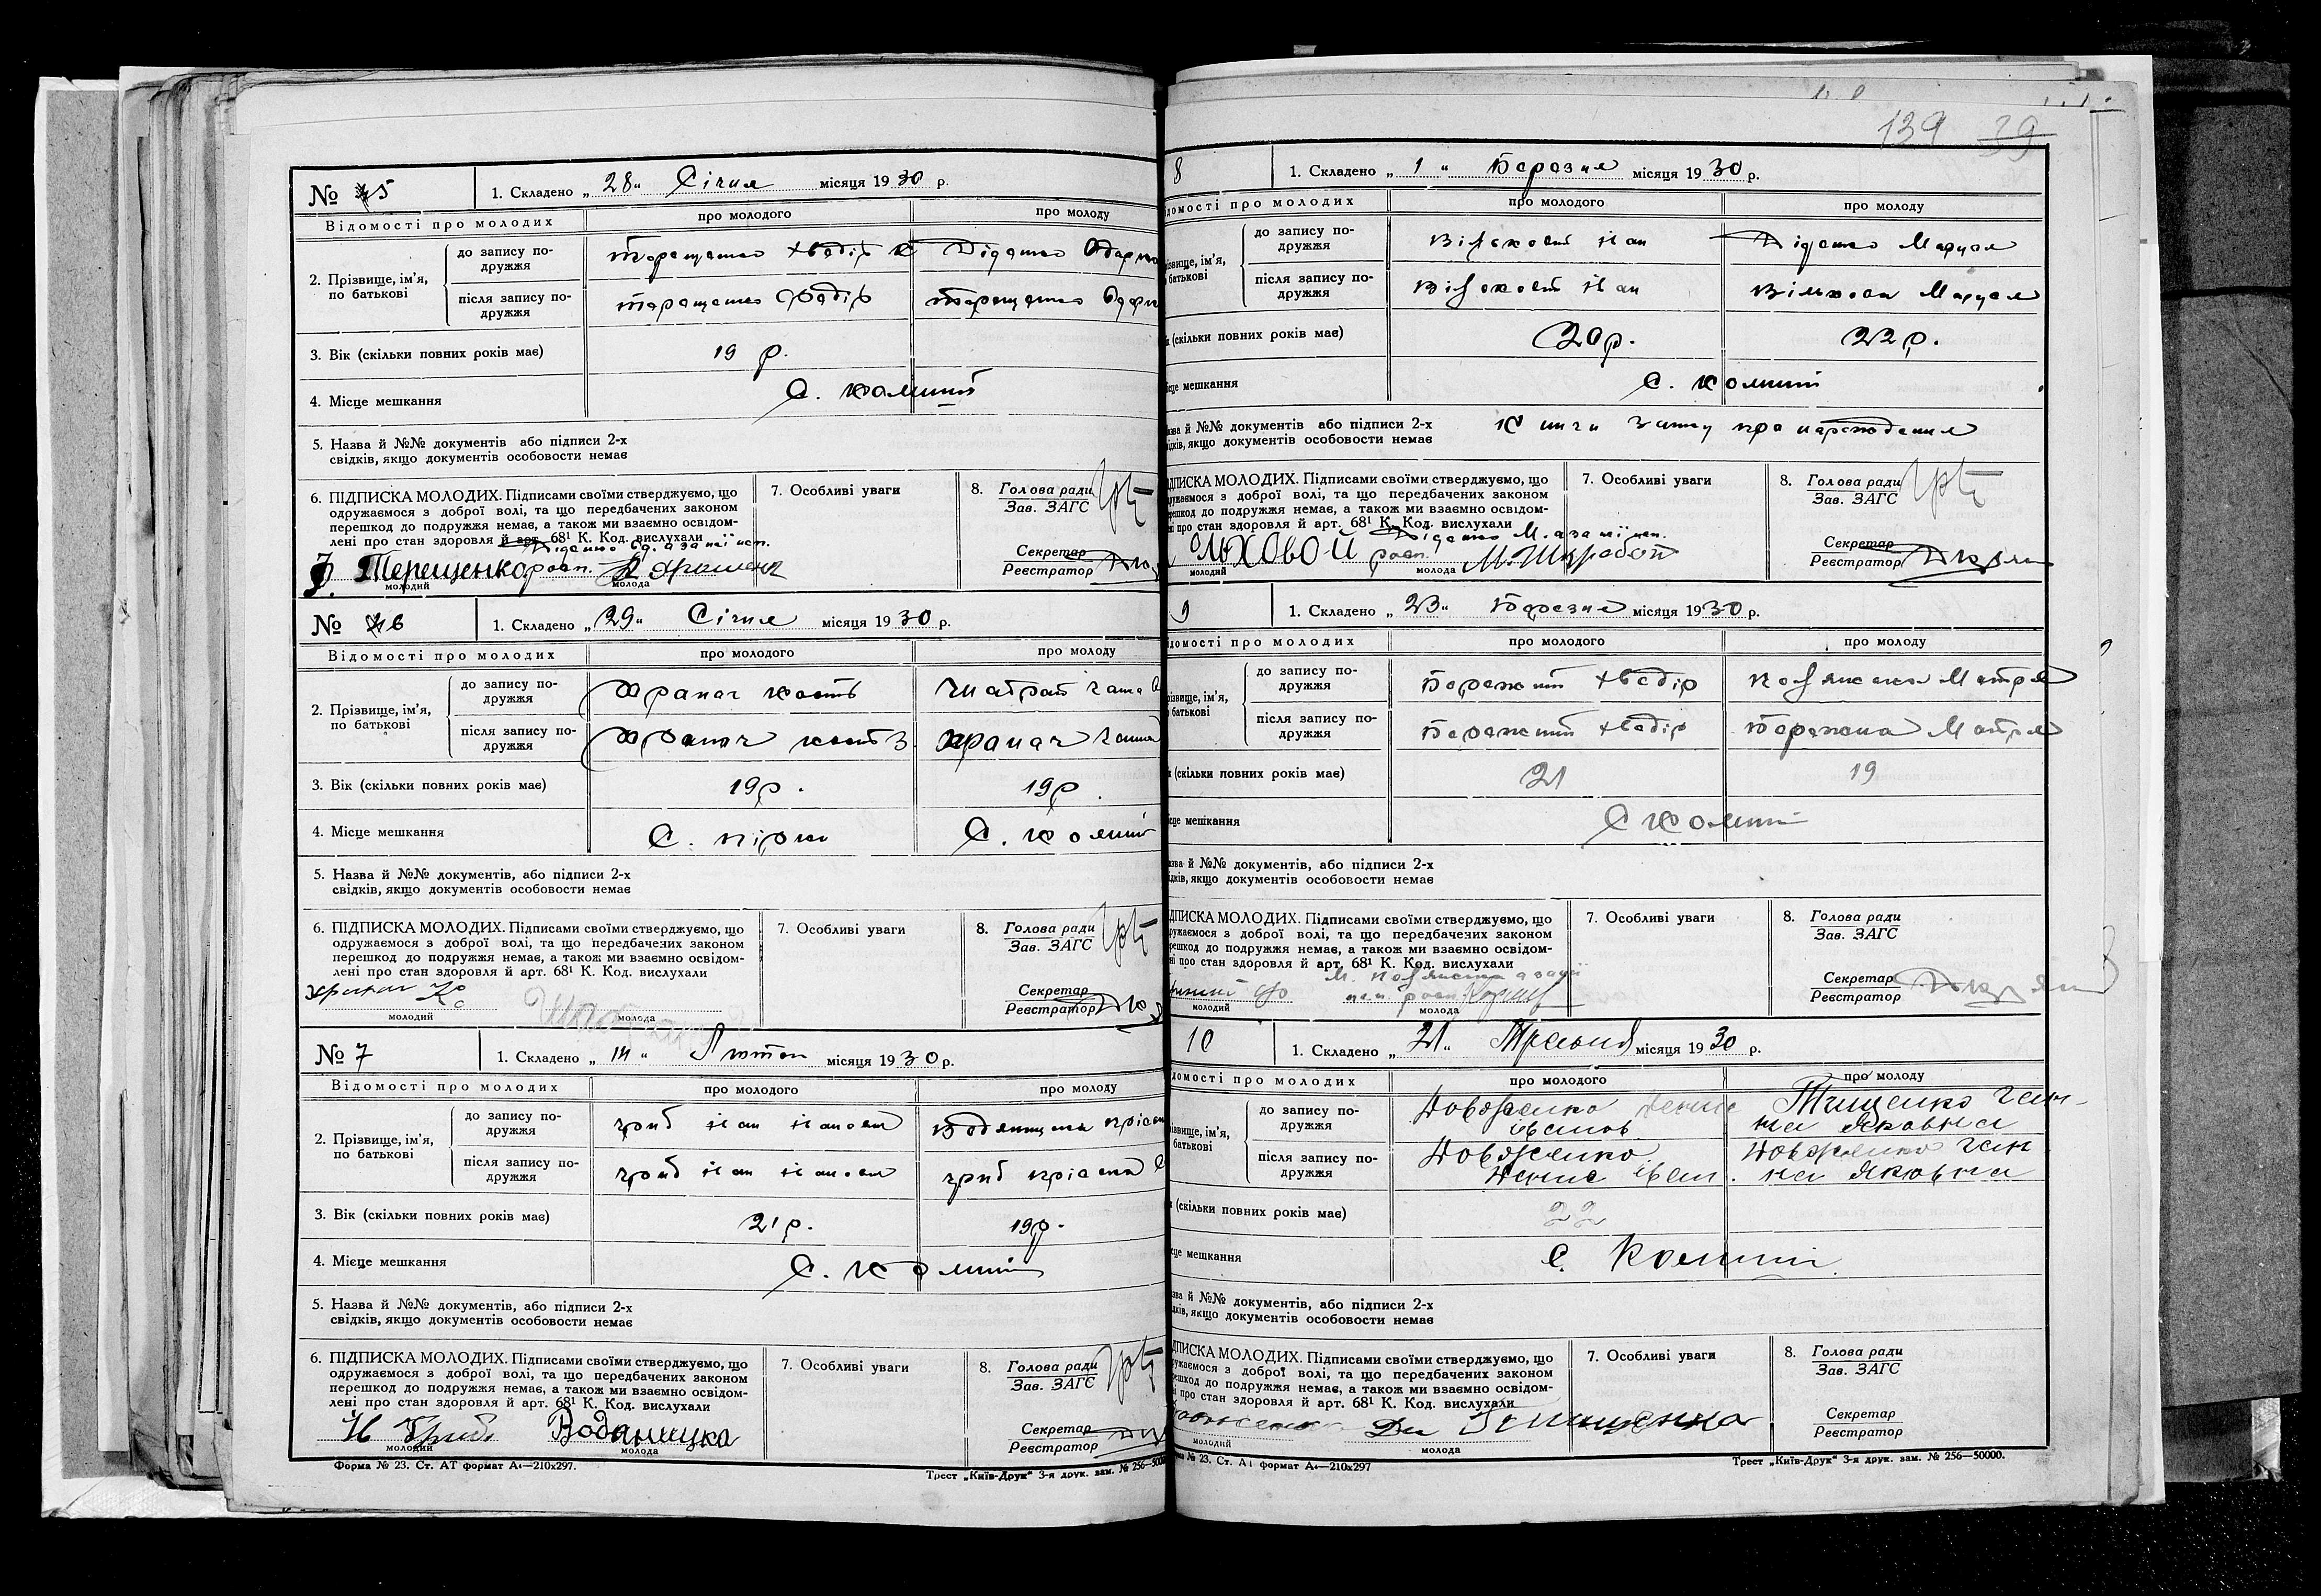 139 39
№ 5
1. Складено „ 28 " Січня місяця 1930 р.
Відомості про молодих
про молодого
про молоду
2. Прізвище, ім'я, по батькові
до запису подружжя
Терещенко Хведір
Діденко Одарка
після запису подружжя
Терещенко Хведір
Терещенко Одарк
3. Вік (скільки повних років має)
19 р.
4. Місце мешкання
С.
5. Назва й №№ документів або підписи 2-х
свідків, якщо документів особовости немає
6. ПІДПИСКА МОЛОДИХ. Підписами своїми стверджуємо, що
одружаємося з доброї волі, та що передбачених законом
перешкод до подружжя немає, а також ми взаємно освідом-
лені про стан здоровля й арт. 68¹ К. Код. вислухали
Діденко Од. а за неї неп.
Ф. Терещенко росп.
молодий
молода
7. Особливі уваги
8. Голова ради
Зав. ЗАГС
Секретар
Реєстратор
№ 6
1. Складено „ 29 " Січня місяця 1930 р.
Відомості про молодих
про молодого
про молоду
2. Прізвище, ім'я, по батькові
до запису подружжя
Храпач Кость
Ганна
після запису подружжя
Храпач Кость
Храпач Ганна
3. Вік (скільки повних років має)
19 р.
19 р.
4. Місце мешкання
С. Пірки
С.
5. Назва й №№ документів, або підписи 2-х
свідків, якщо документів особовости немає
6. ПІДПИСКА МОЛОДИХ. Підписами своїми стверджуємо, що
одружаємося з доброї волі, та що передбачених законом
перешкод до подружжя немає, а також ми взаємно освідом-
лені про стан здоровля й арт. 68¹ К. Код. вислухали
Храпач Ко
молодий
молода
7. Особливі уваги
8. Голова ради
Зав. ЗАГС
Секретар
Реєстратор
№ 7
1. Складено „ " Лютого місяця 1930 р.
Відомості про молодих
про молодого
про молоду
2. Прізвище, ім'я, по батькові
до запису подружжя
Гриб Іван Іванов
Водяницька
після запису подружжя
Гриб Іван Іванов
Гриб
3. Вік (скільки повних років має)
21 р.
19 р.
4. Мієце мешкання
С.
5. Назва й №№ документів, або підписи 2-х
свідків, якщо документів особовости немає
6. ПІДПИСКА МОЛОДИХ. Підписами своїми стверджуємо, що
одружаємося з доброї волі, та що передбачених законом
перешкод до подружжя немає, а також ми взаємно освідом-
лені про стан здоровля й арт. 68¹ К. Код. вислухали
И Гриб
Водяницка
молодий
молода
7. Особливі уваги
8. Голова ради
Зав. ЗАГС
Секретар
Реєстратор
Форма № 23. Ст. АТ формат А₄—210х297.
Трест „Київ-Друк" 3-я друк. зам. № 256—5000
8
1. Складено „ 1 " Березня місяця 1930 р.
ідомості про молодих
про молодого
про молоду
різвище, ім'я, батькові
до запису подружжя
Вільховий Іван
Діденко Мария
після запису подружжя
Вільховий Іван
Вільхова Мария
(скільки повних років має)
20 р.
22 р.
мешкання
С.
й №№ документів або підписи 2-х
якщо документів особовости немає
Книги Запису про народження
ПИСКА МОЛОДИХ. Підписами своїми стверджуємо, що
з доброї волі, та що передбачених законом
до подружжя немає, а також ми взаємно освідом-
про стан здоровля й арт. 68¹ К. Код. вислухали
Діденко М. а за неї неп.
льховой росп.
молодий
молода
7. Особливі уваги
8. Голова ради
Зав. ЗАГС
Секретар
Реєстратор
9
1. Складено „ 23 " Березня місяця 1930 р.
домості про молодих
про молодого
про молоду
різвище, ім'я, батькові
до запису подружжя
Бережний Хведір
після запису подружжя
Бережний Хведір
Бережна
(скільки повних років має)
21
19
мешкання
С
й №№ документів, або підписи 2-х
якщо документів особовости немає
ДПИСКА МОЛОДИХ. Підписами своїми стверджуємо, що
з доброї волі, та що передбачених законом
до подружжя немає, а також ми взаємно освідом-
про стан здоровля й арт. 68¹ К. Код. вислухали
молодий
молода
7. Особливі уваги
8. Голова ради
Зав. ЗАГС
Секретар
Реєстратор
10
1. Складено „ 21 " Травня місяця 1930 р.
домості про молодих
про молодого
про молоду
ім'я, батькові
до запису подружжя
Довженко Денис
Іванов
Тищенко Ган-
на Яковна
після запису подружжя
Довженко
Денис Іван.
Довженко Ган
на Яковна
(скільки повних років має)
22
мешкання
С.
й №№ документів, або підписи 2-х
якщо документів особовости немає
МОЛОДИХ. Підписами своїми стверджуємо, що
з доброї волі, та що передбачених законом
до подружжя немає, а також ми взаємно освідом-
про стан здоровля й арт. 68¹ К. Код. вислухали
молодий
молода
7. Особливі уваги
8. Голова ради
Зав. ЗАГС
Секретар
Реєстратор
№ 23. Ст. АТ формат А₄—210х297
Трест „Київ-Друк" 3-я друк. зам. № 256—50000.